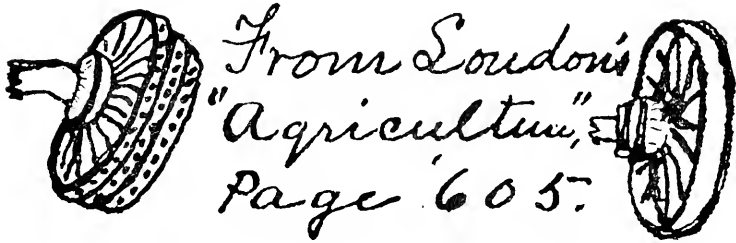 From Loudon's
"Agriculture",
Page 605.